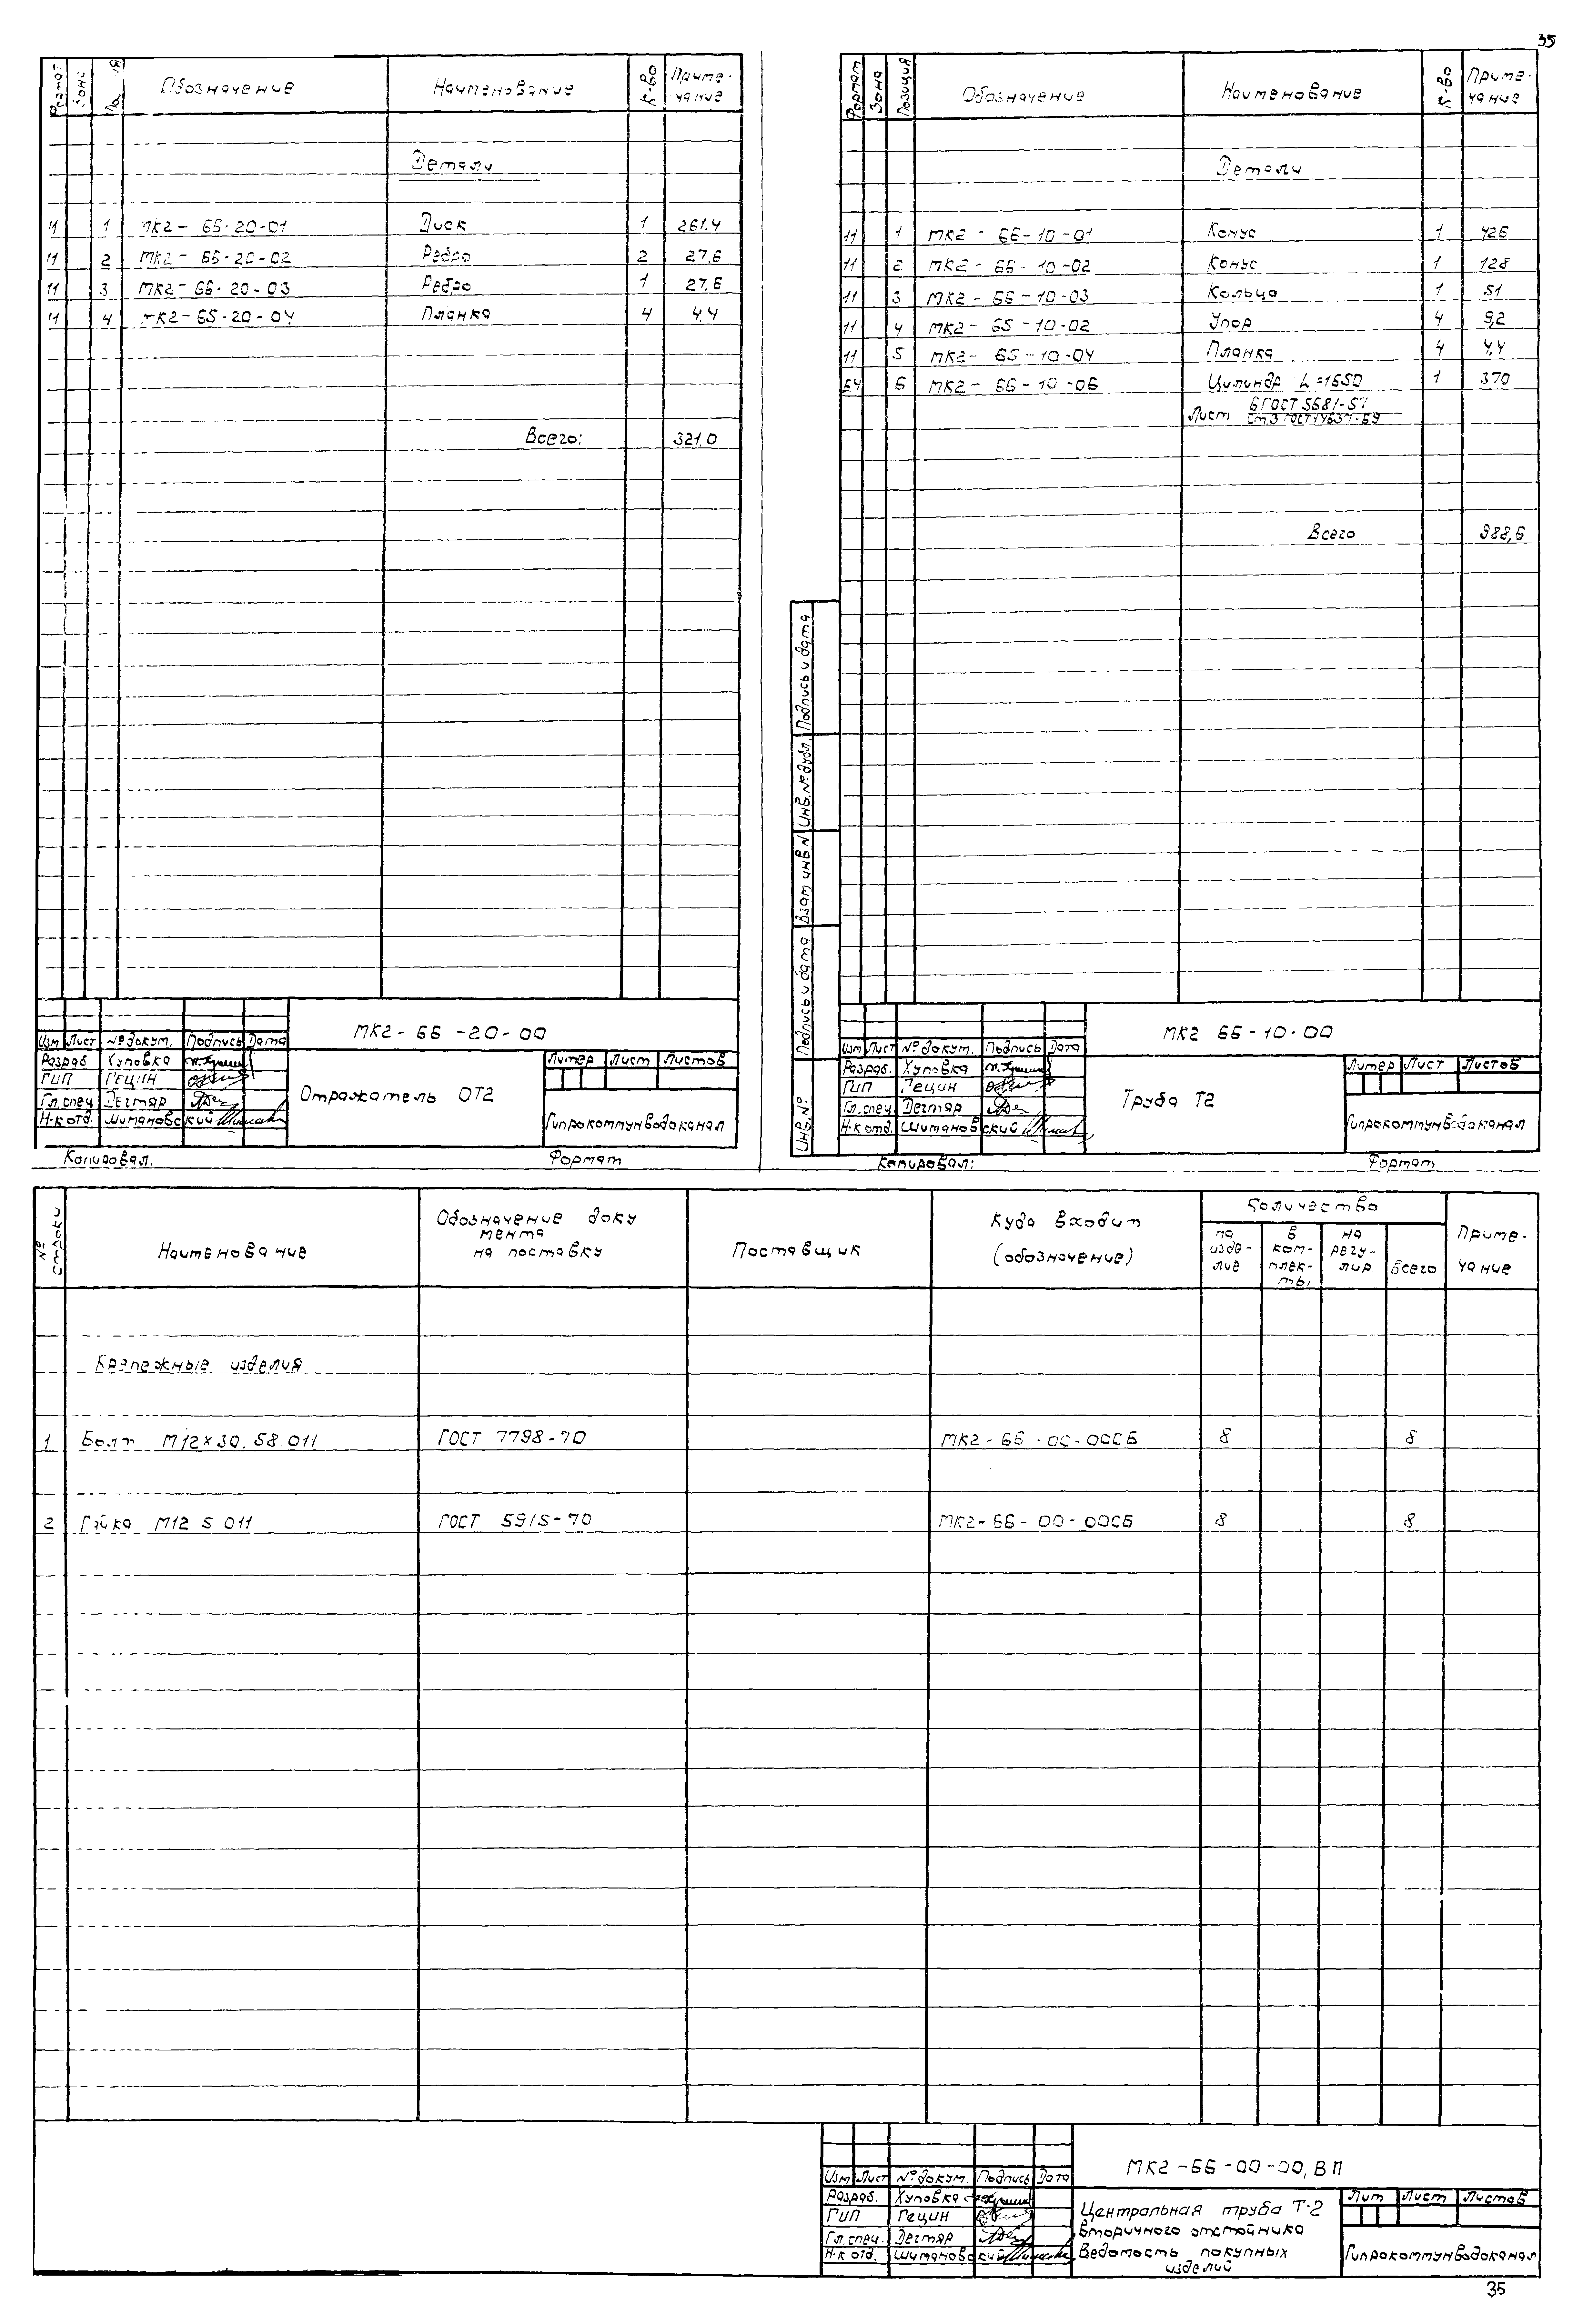 35
Обозначение Наименование К-во Приме-чание
Детали
11 1 МК2-66-20-01 Диск 1 261,4
11 2 МК2-66-20-02 Ребро 2 27,6
11 3 МК2-66-20-03 Ребро 1 27,6
11 4 МК2-65-20-04 Планка 4 4,4
Всего: 321,0
МК2-66-20-00
Изм Лист № докум. Подпись Дата
Разраб Хуповка
ГИП Гецин
Гл.спец Дегтяр
Н-к отд. Шимановский
Отражатель ОТ2
Литер Лист Листов
Гипрокоммунводоканал
Копировал. Формат
Формат Зона Позиция Обозначение Наименование К-во Приме-чание
Детали
11 1 МК2-66-10-01 Конус 1 426
11 2 МК2-66-10-02 Конус 1 128
11 3 МК2-66-10-03 Кольцо 1 51
11 4 МК2-65-10-02 Упор 4 9,2
11 5 МК2-65-10-04 Планка 4 4,4
БЧ 6 МК2-66-10-06 Цилиндр L=1650 1 370
Лист 6 ГОСТ 5681-57
Ст.3 ГОСТ 14637-69
Всего 988,6
Подпись и дата
Инв.№ дубл.
Взам инв N
Подпись и дата
Инв.№
МК2 66-10-00
Изм Лист № докум. Подпись Дата
Разраб. Хуповка
ГИП Гецин
Гл.спец Дегтяр
Н-к отд. Шимановский
Труба Т2
Литер Лист Листов
Гипрокоммунводоканал
Копировал: Формат
№ строки
Наименование
Обозначение доку
мента
на поставку
Поставщик
Куда входит
(обозначение)
Количество
на изде-лие
в ком-плек-ты
на регу-лир.
Всего
Приме-чание
Крепежные изделия
1 Болт М12х30.58.011 ГОСТ 7798-70 МК2-66-00-00СБ 8 8
2 Гайка М12 5 011 ГОСТ 5915-70 МК2-66-00-00СБ 8 8
МК2-66-00-00, ВП
Изм Лист № докум. Подпись Дата
Разраб. Хуповка
ГИП Гецин
Гл.спец. Дегтяр
Н-к отд. Шимановский
Центральная труба Т-2
вторичного отстойника
Ведомость покупных
изделий
Лит Лист Листов
Гипрокоммунводоканал
35